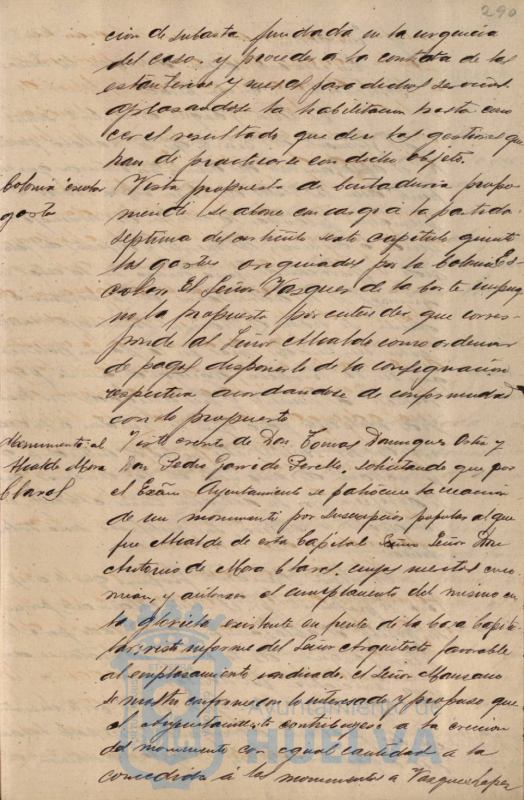 290
cion de subasta fundada en la urgencia
del caso, y proceder á la contrata de las
estanterias y mesas para dichos servicios
aplazandose la habilitacion hasta cono
cer el resultado que den las gestiones que
han de practicarse con dicho objeto.
Colonia escolar
gasto
Vista propuesta de Contaduria propo
niendo se abone con cargo á la partida
septima del articulo sexto capitulo quinto
los gastos originados por la Colonia Es-
colar, El Señor Vazquez de la Corte impug
nó la propuesta por entender que corres-
ponde al Señor Alcalde como ordenador
de pagos disponerlo de la consignacion
respectiva acordandose de conformidad
con lo propuesto
Monumento al
Alcalde Mora
Claros
Visto escrito de Don Tomas Dominguez Ortiz y
Don Pedro Garrido Perelló, solicitando que por
el Exmo Ayuntamiento se patrocine la creacion
de un monumento por suscripcion popular al que
fue Alcalde de esta Capital Exmo Señor Don
Antonio de Mora Claros, cuyos meritos enco
mian, y autorice el emplazamiento del mismo en
la glorieta existente en frente de la casa Capitu
lar; visto informe del Señor Arquitecto favorable
al emplazamiento indicado, el Señor Manzano
se mostró conforme con lo interesado y propuso que
el Ayuntamiento contribuyese á la creacion
del monumento con igual cantidad á la
concedida á los monumentos a Vazquez Lopez
Ayuntamiento de
HUELVA